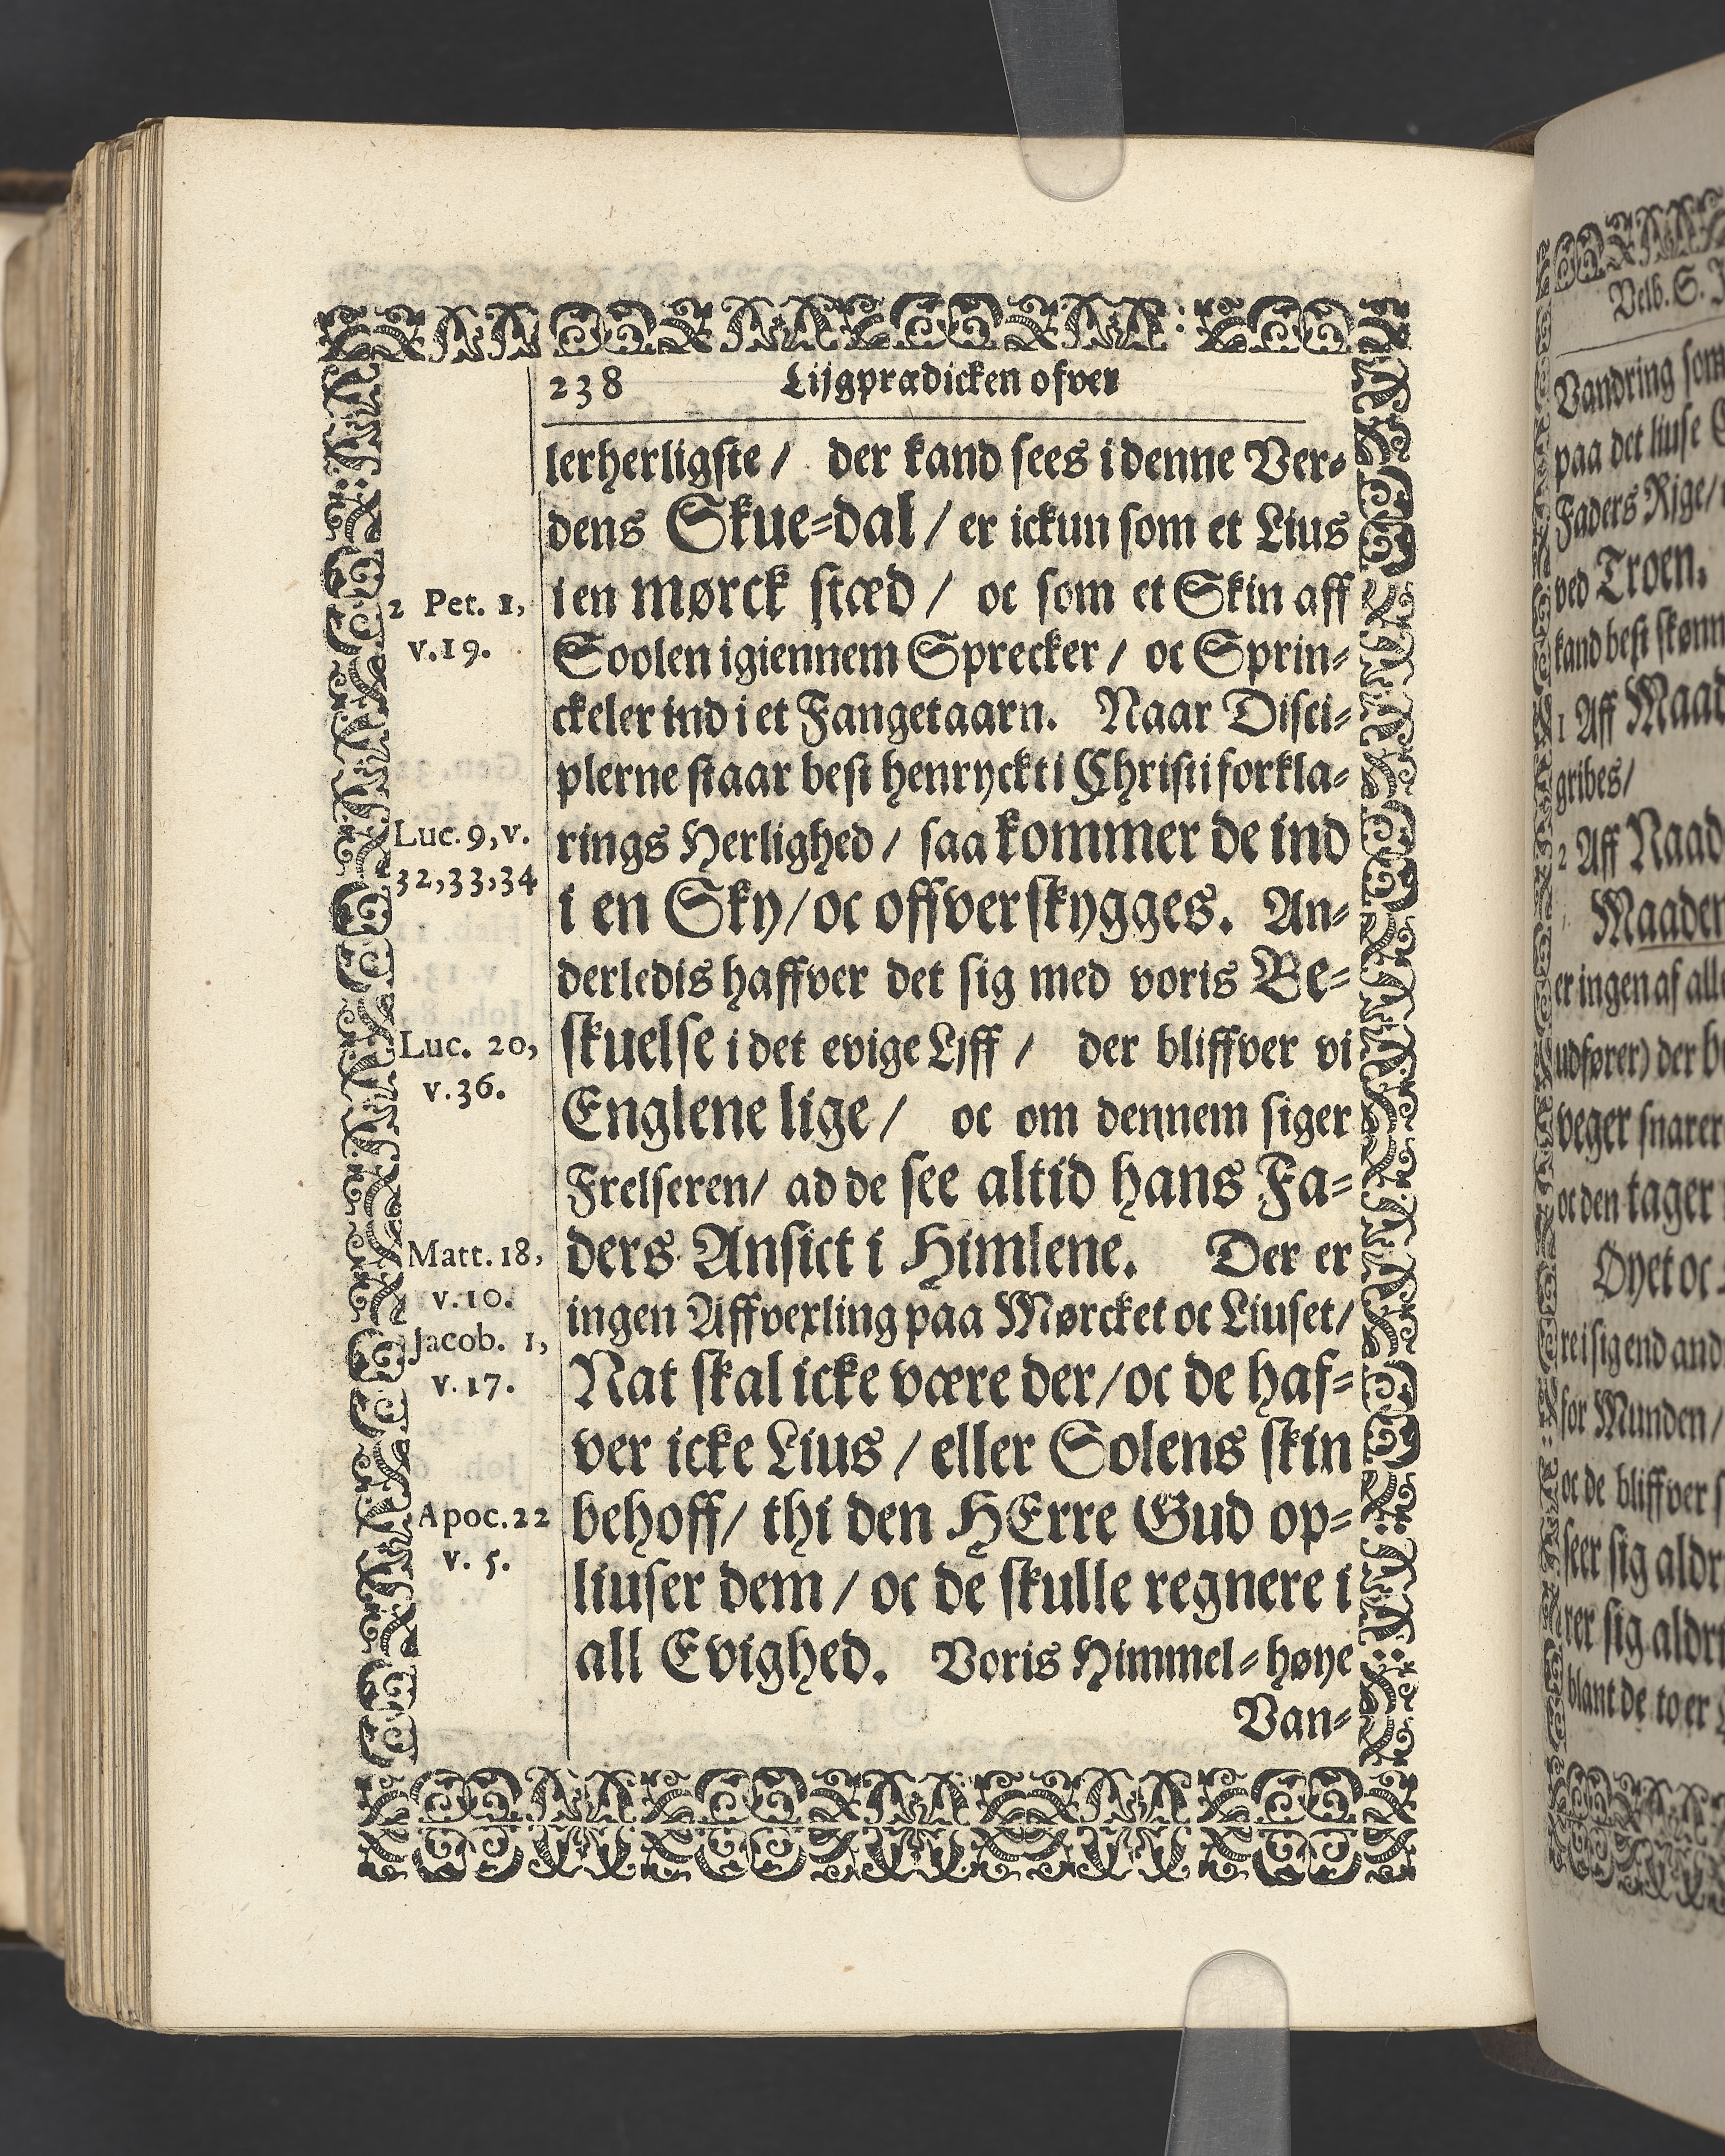 238 Lijgprædicken ofver
lerherligste / der kand sees i denne Ver-
dens Skue-dal / er ickun som et Lius
i en mørck stæd / oc som et Skin aff
2 Pet. 1,
v.19.
Soolen igiennem Sprecker / oc Sprin-
ckeler ind i et Fangetaarn. Naar Disci-
plerne staar best henryckt i Christi forkla-
rings Herlighed / saa kommer de ind
Luc. 9, v.
32,33,34
i en Sky / oc offverskygges. An-
derledis haffver det sig med voris Be-
skuelse i det evige Lijff / der bliffver vi
Luc. 20,
v.36.
Englene lige / oc om dennem siger
Frelseren / ad de see altid hans Fa-
ders Ansict i Himlene. Der er
Matt. 18,
v.10.
ingen Affvexling paa Mørcket oc Liuset /
Jacob. 1,
v.17.
Nat skal icke være der / oc de haf-
ver icke Lius / eller Solens skin
behoff / thi den HErre Gud op-
Apoc.22
v. 5.
liuser dem / oc de skulle regnere i
all Evighed. Voris Himmel-høye
Van-
Velb. S.
Vandring som
paa det liuse
Faders Rige /
ved Troen.
kand best
1 Aff
gribes /
2 Aff
er ingen af
udfører) der
veger snarer
oc den tager
Øyet oc
for Munden /
oc de bliffver
seer sig
sig
blant de to er